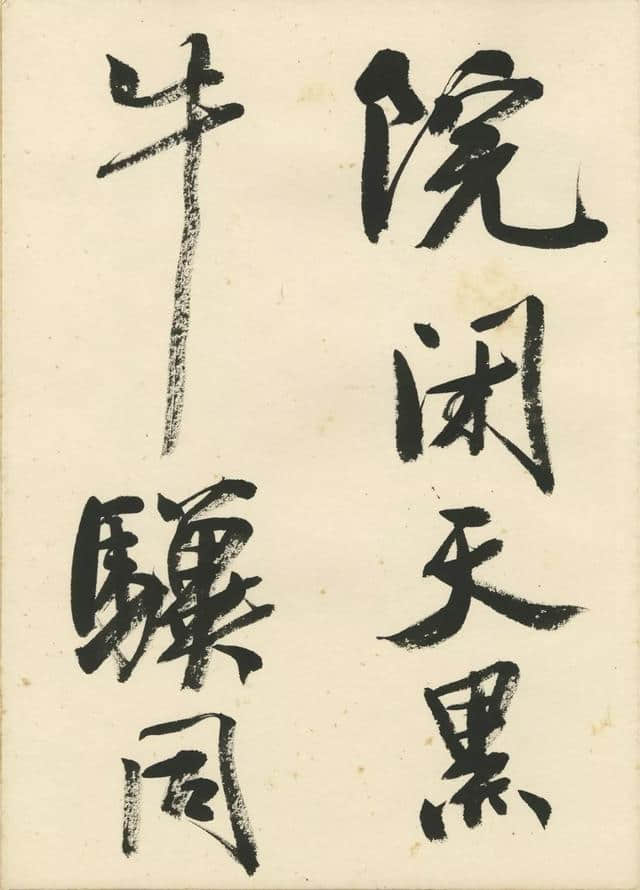 院閉天黑
牛驥同